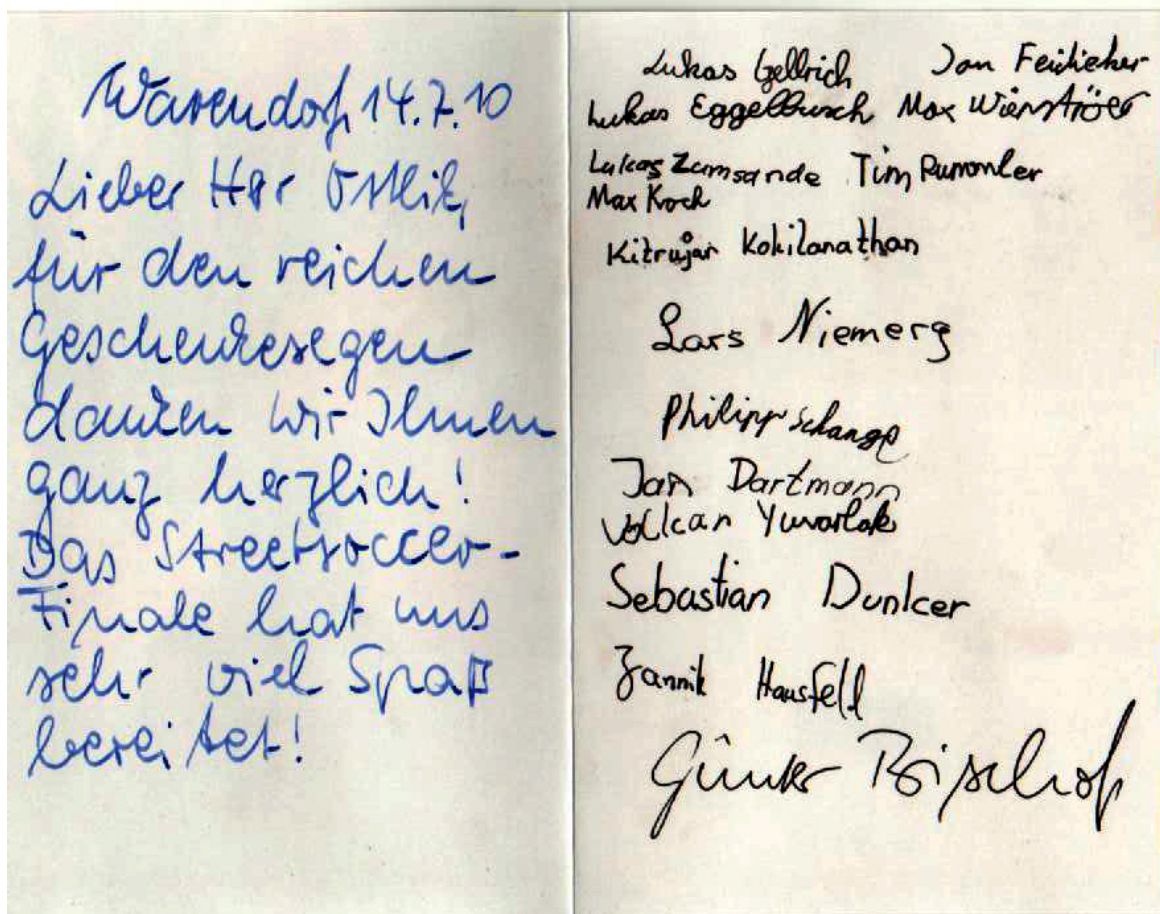 Warendorf, 14.7.10
Lieber Herr
für den reichen
Geschenkesegen
danken wir Ihnen
ganz herzlich!
Das Streetsoccer-
Finale hat uns
sehr viel Spaß
bereitet!
Lukas Gellrich Jan
Lukas Eggelbusch Max Wienströer
Lukas Zumsande Tim Rummler
Max Koch
Kitrujan Kokilanathan
Lars Niemerg
Philipp Schange
Jan Dartmann
Volkan Yuvarlak
Sebastian Dunker
Jannik Hausfeld
Günter Bischof